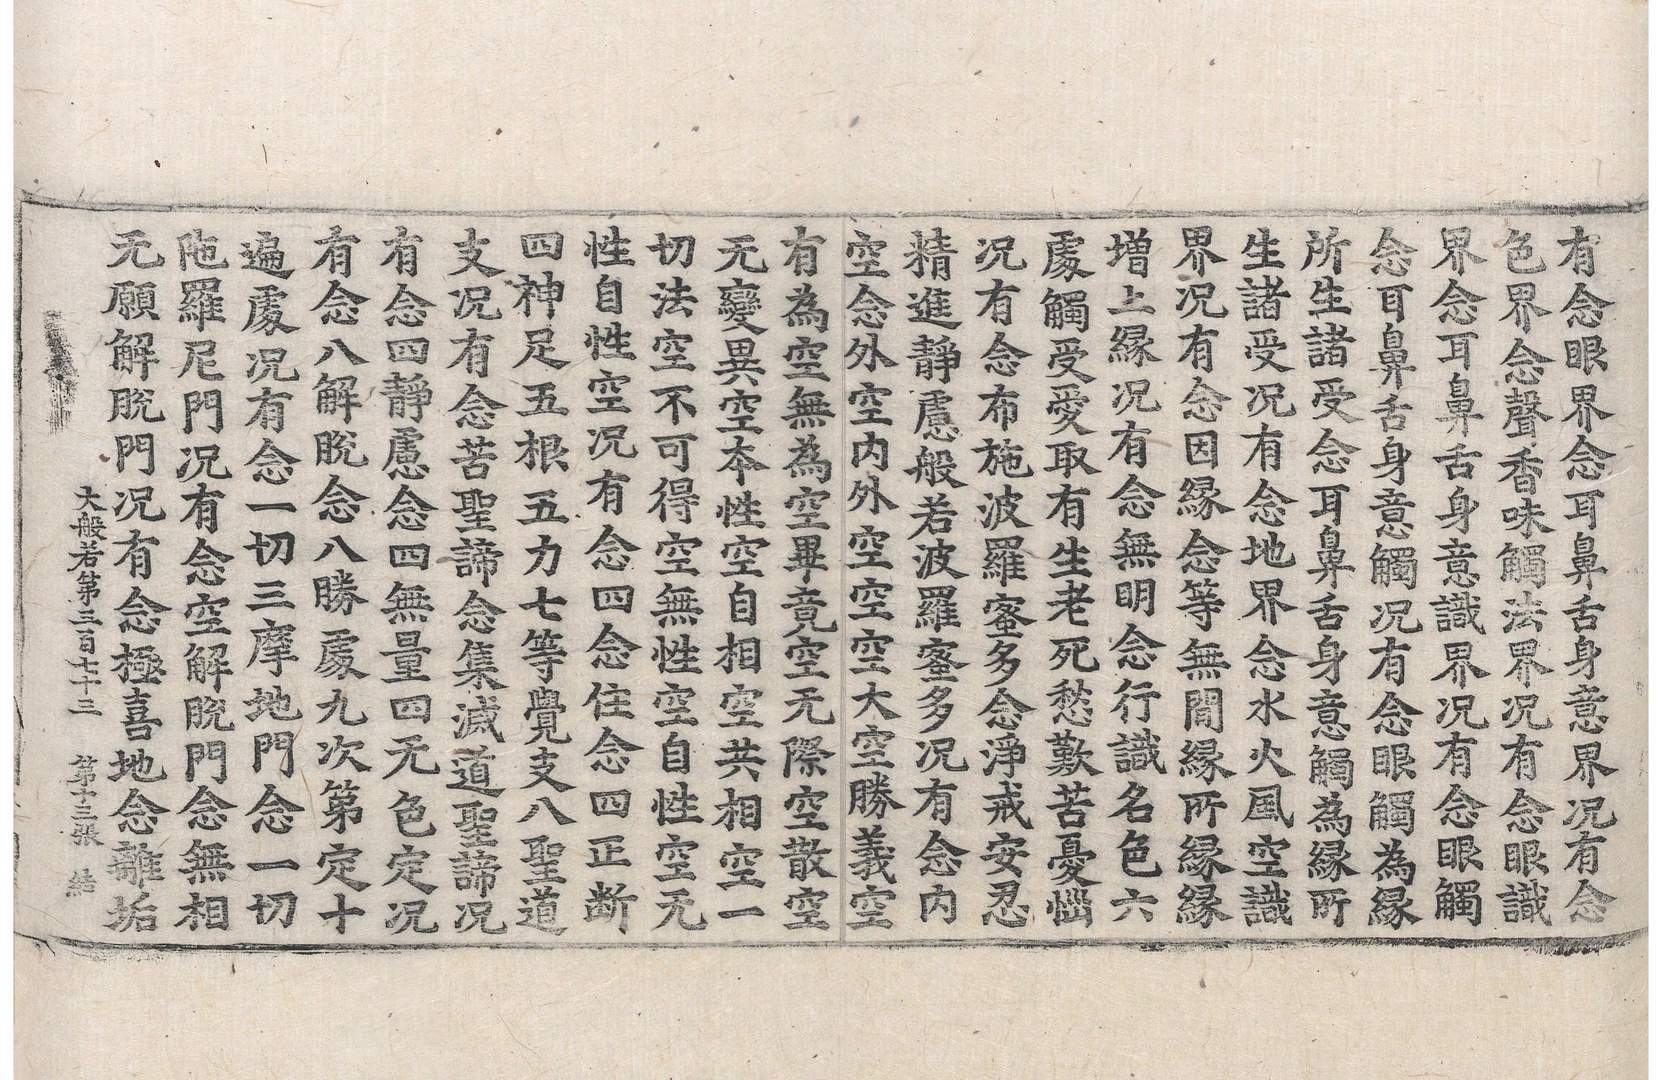 有念眼界念耳鼻舌身意界況有念
色界念聲香味觸法界況有念眼識
界念耳鼻舌身意識界況有念眼觸
念耳鼻舌身意觸況有念眼觸為縁
所生諸受念耳鼻舌身意觸為縁所
生諸受況有念地界念水火風空識
界況有念因縁念等無間縁所縁縁
增上縁況有念無明念行識名色六
處觸受愛取有生老死愁歎苦憂惱
況有念布施波羅蜜多念淨戒安忍
精進靜慮般若波羅蜜多況有念內
空念外空內外空空空大空勝義空
有為空無為空畢竟空无際空散空
无變異空本性空自相空共相空一
切法空不可得空無性空自性空无
性自性空況有念四念住念四正斷
四神足五根五力七等覺支八聖道
支況有念苦聖諦念集滅道聖諦況
有念四靜慮念四無量四无色定況
有念八解脫念八勝處九次第定十
遍處況有念一切三摩地門念一切
陁羅尼門況有念空解脫門念無相
无願解脫門況有念極喜地念離垢
大般若第三百七十三 第十三張 結